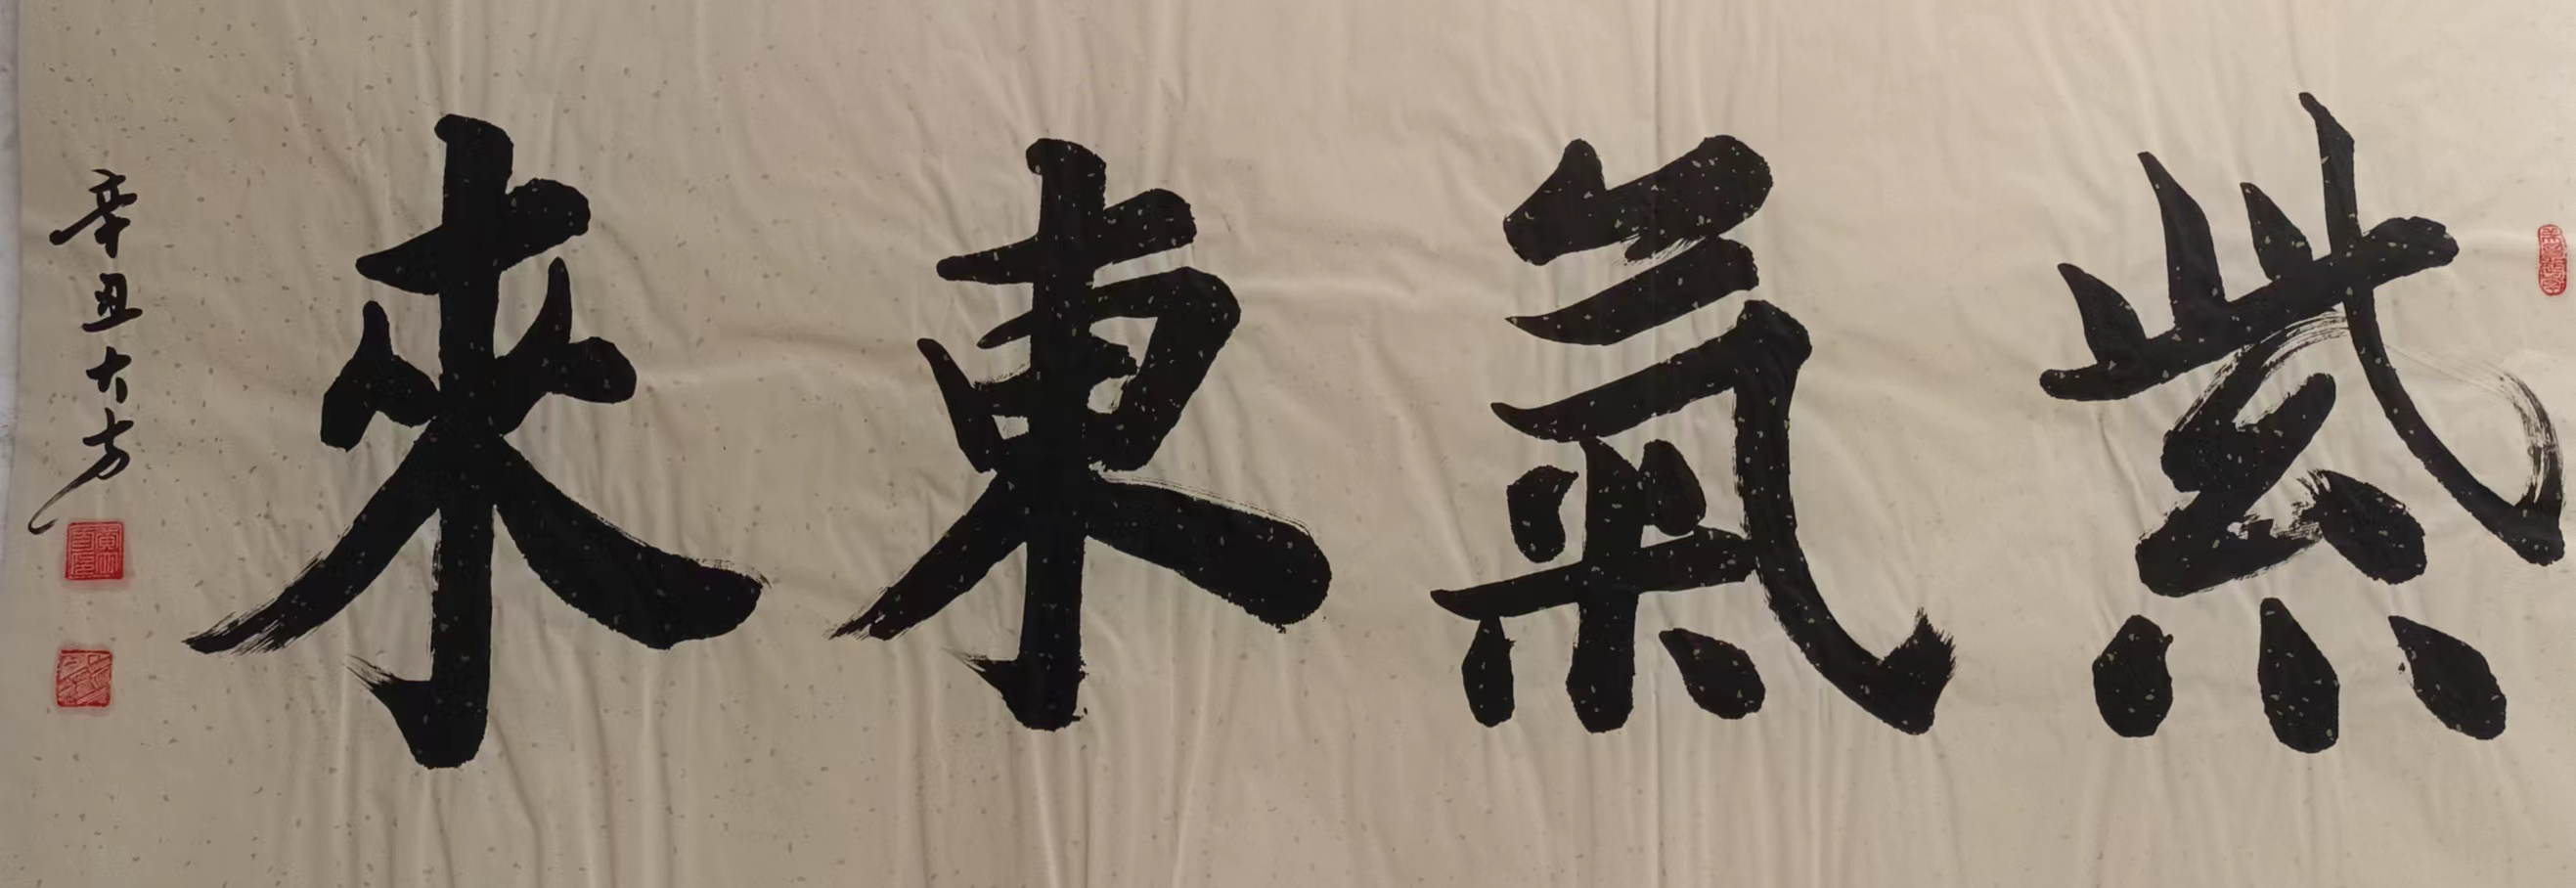 紫氣東來
辛丑大方